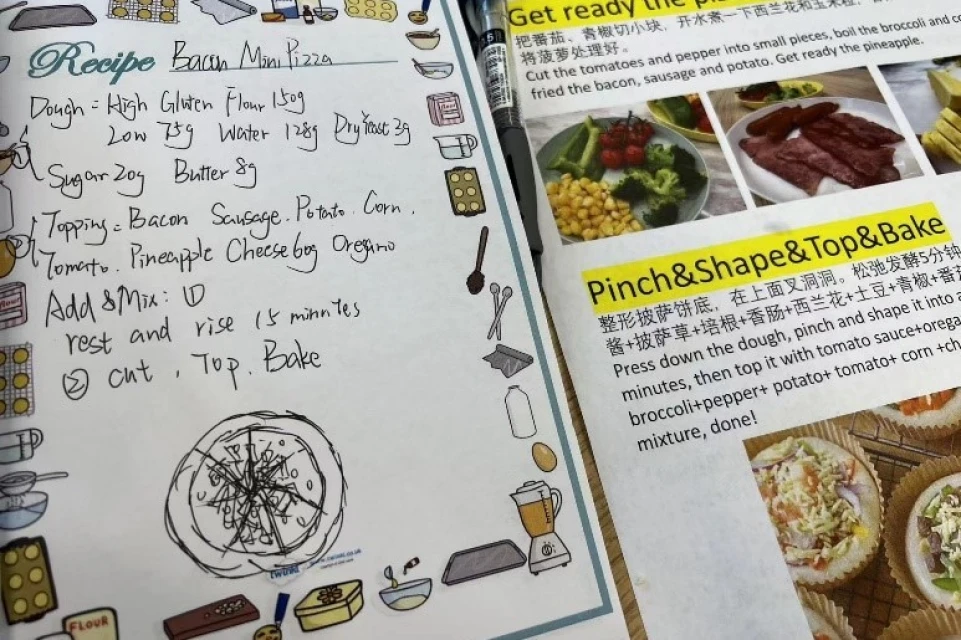 Recipe Bacon Mini Pizza
Dough = High Gluten Flour 150g
Low 75g Water 128g Dry Yeast 3g
Sugar 20g Butter 8g
Topping = Bacon Sausage. Potato. Corn.
Tomato. Pineapple Cheese 60g Oregano
Add & Mix: ①
rest and rise 15 minutes
② cut, Top. Bake
twinkl www.twinkl.co.uk
FLOUR
Get ready the
把番茄、青椒切小块，开水煮一下西兰花和玉米粒，
将菠萝处理好。
Cut the tomatoes and pepper into small pieces, boil the broccoli and
fried the bacon, sausage and potato. Get ready the pineapple.
Pinch&Shape&Top&Bake
整形披萨饼底，在上面叉洞洞。松弛发酵5分钟
酱+披萨草+培根+香肠+西兰花+土豆+青椒+番
Press down the dough, pinch and shape it into a
minutes, then top it with tomato sauce+orega
broccoli+pepper+ potato+ tomato+ corn +ch
mixture, done!